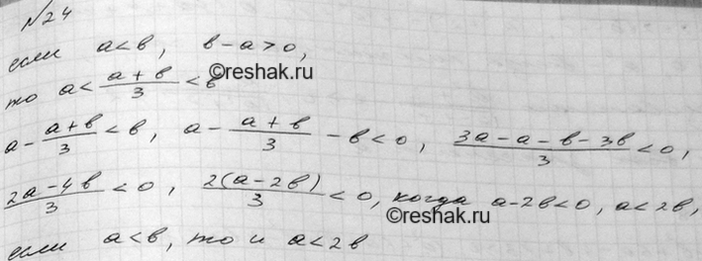 №24
если a<b, b-a>0,
то a< (a+b)/3 <b
©reshak.ru
a- (a+b)/3 <b, a- (a+b)/3 -b<0, (3a-a-b-3b)/3 <0,
(2a-4b)/3 <0, (2(a-2b))/3 <0, когда a-2b<0, a<2b,
©reshak.ru
если a<b, то и a<2b